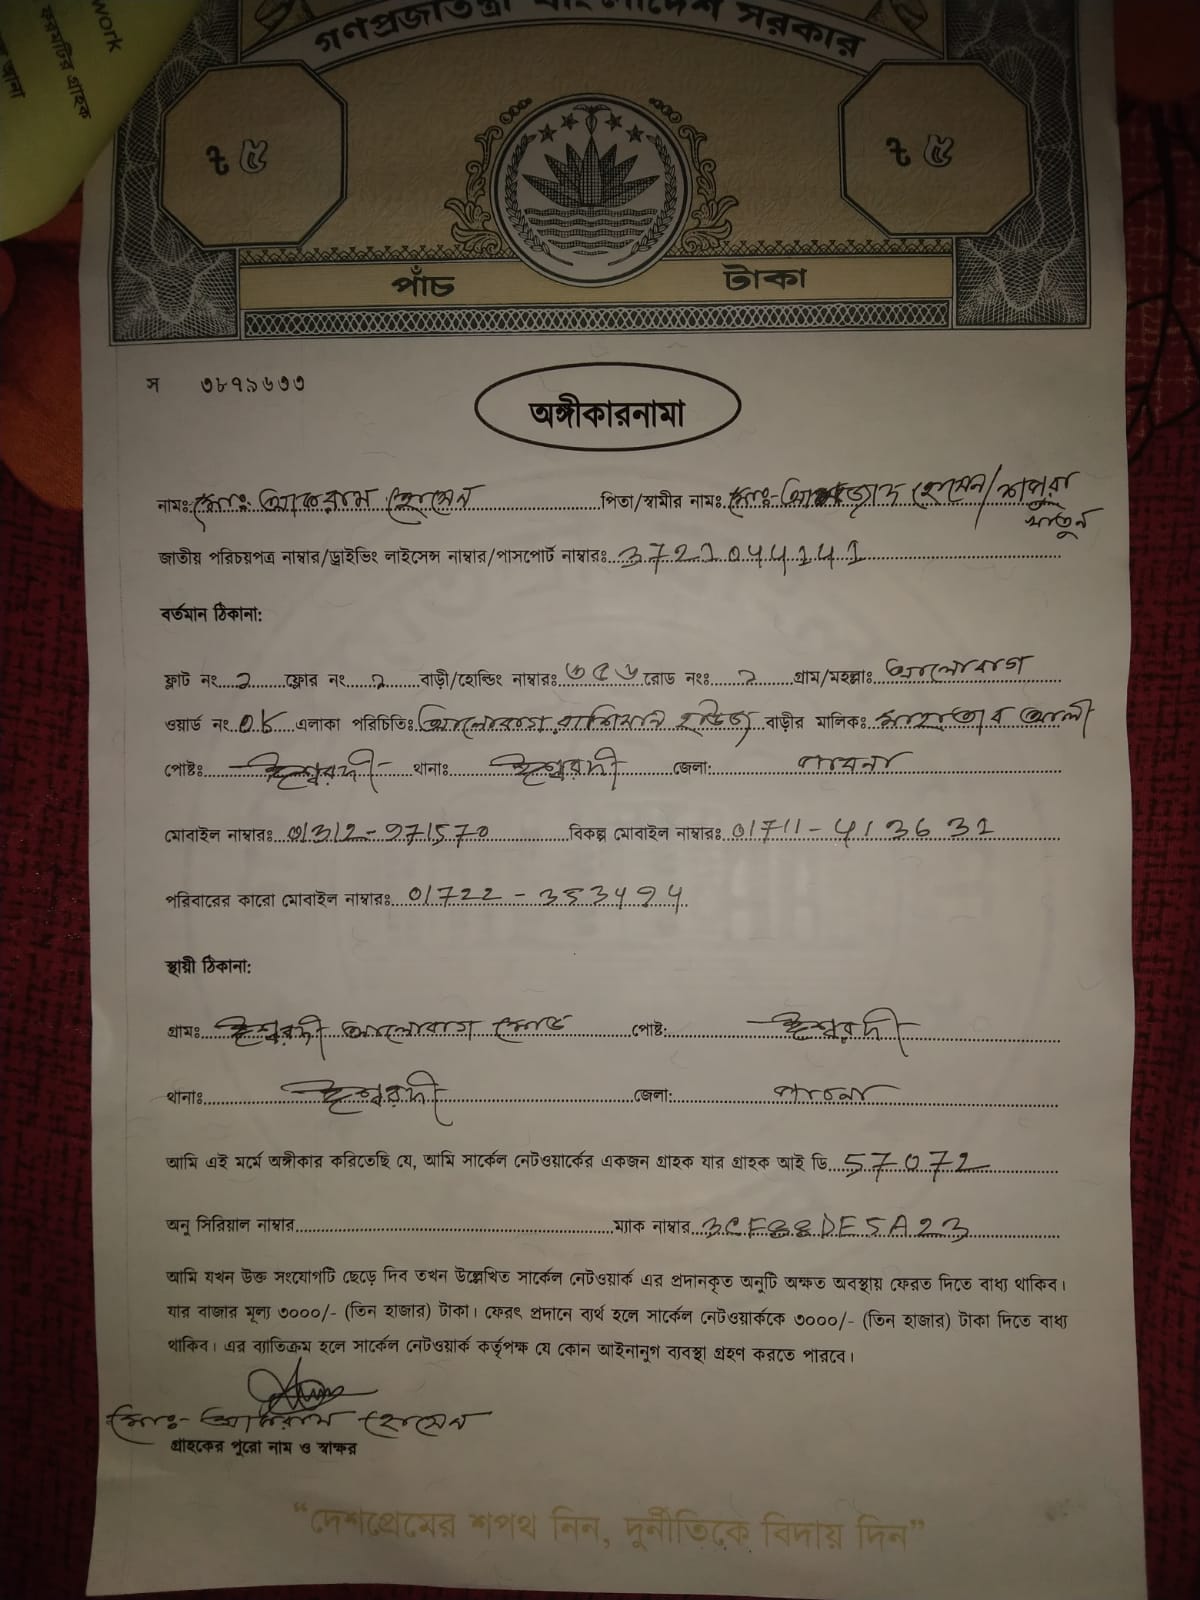 work
ফরমটির গ্রাহক
গণপ্রজাতন্ত্রী বাংলাদেশ সরকার
৳ ৫ ৳ ৫
পাঁচ টাকা
স ৩৮৭৯৬৩৩
অঙ্গীকারনামা
নামঃ মোঃ আকরাম হোসেন পিতা/স্বামীর নামঃ মোঃ- আমজাদ হোসেন/ খাতুন
জাতীয় পরিচয়পত্র নাম্বার/ড্রাইভিং লাইসেন্স নাম্বার/পাসপোর্ট নাম্বারঃ 3721044141
বর্তমান ঠিকানা:
ফ্লাট নং ২ ফ্লোর নং ২ বাড়ী/হোল্ডিং নাম্বারঃ ৩৫৬ রোড নংঃ ২ গ্রাম/মহল্লাঃ আলোবাগ
ওয়ার্ড নং এলাকা পরিচিতিঃ আলোবাগ বাড়ীর মালিকঃ আলী
পোষ্টঃ ঈশ্বরদী থানাঃ ঈশ্বরদী জেলা: পাবনা
মোবাইল নাম্বারঃ 01312-971570 বিকল্প মোবাইল নাম্বারঃ 01711-413631
পরিবারের কারো মোবাইল নাম্বারঃ 01722-
স্থায়ী ঠিকানা:
গ্রামঃ ঈশ্বরদী আলোবাগ মোড় পোষ্ট: ঈশ্বরদী
থানাঃ ঈশ্বরদী জেলা: পাবনা
আমি এই মর্মে অঙ্গীকার করিতেছি যে, আমি সার্কেল নেটওয়ার্কের একজন গ্রাহক যার গ্রাহক আই ডি 57072
অনু সিরিয়াল নাম্বার ম্যাক নাম্বার 3CF88DE5A23
আমি যখন উক্ত সংযোগটি ছেড়ে দিব তখন উল্লেখিত সার্কেল নেটওয়ার্ক এর প্রদানকৃত অনুটি অক্ষত অবস্থায় ফেরত দিতে বাধ্য থাকিব।
যার বাজার মূল্য ৩০০০/- (তিন হাজার) টাকা। ফেরৎ প্রদানে ব্যর্থ হলে সার্কেল নেটওয়ার্ককে ৩০০০/- (তিন হাজার) টাকা দিতে বাধ্য
থাকিব। এর ব্যতিক্রম হলে সার্কেল নেটওয়ার্ক কর্তৃপক্ষ যে কোন আইনানুগ ব্যবস্থা গ্রহণ করতে পারবে।
মোঃ- আকরাম হোসেন
গ্রাহকের পুরো নাম ও স্বাক্ষর
“দেশপ্রেমের শপথ নিন, দুর্নীতিকে বিদায় দিন”